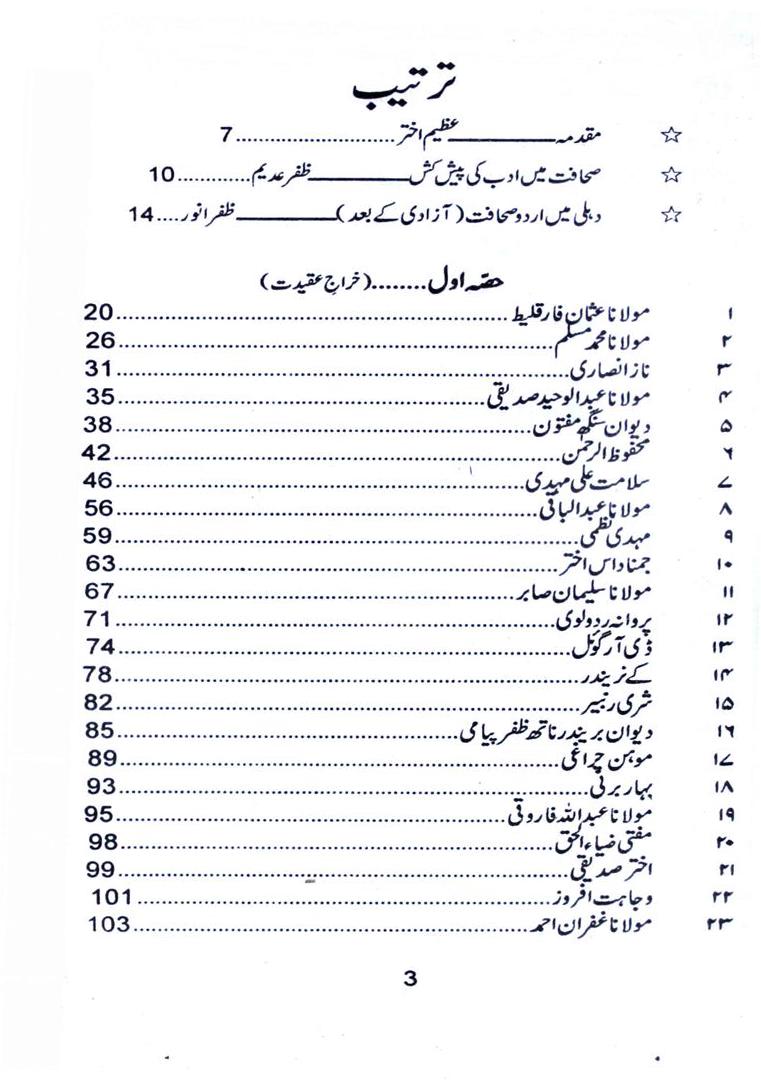 ترتیب
☆ مقدمہ ـــــــــــ عظیم اختر ........................... 7
☆ صحافت میں ادب کی پیش کش ـــــــــــ ظفر عدیم ............ 10
☆ دہلی میں اردو صحافت (آزادی کے بعد) ـــــــــــ ظفر انور .... 14
حصّہ اول ........ (خراجِ عقیدت)
۱ مولانا عثمان فارقلیط ........................... 20
۲ مولانا محمد مسلم ........................... 26
۳ ناز انصاری ........................... 31
۴ مولانا عبدالوحید صدیقی ........................... 35
۵ دیوان سنگھ مفتون ........................... 38
۶ محفوظ الرحمٰن ........................... 42
۷ سلامت علی مہدی ........................... 46
۸ مولانا عبدالباقی ........................... 56
۹ مہدی نظمی ........................... 59
۱۰ جمنا داس اختر ........................... 63
۱۱ مولانا سلیمان صابر ........................... 67
۱۲ پروانہ ردولوی ........................... 71
۱۳ ڈی آر گوئل ........................... 74
۱۴ کے نریندر ........................... 78
۱۵ شری رنبیر ........................... 82
۱۶ دیوان بریندر ناتھ ظفر پیامی ........................... 85
۱۷ موہن چراغی ........................... 89
۱۸ بہار برنی ........................... 93
۱۹ مولانا عبداللہ فاروقی ........................... 95
۲۰ مفتی ضیاء الحق ........................... 98
۲۱ اختر صدیقی ........................... 99
۲۲ وجاہت افروز ........................... 101
۲۳ مولانا غفران احمد ........................... 103
3